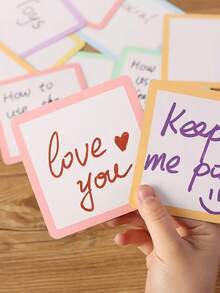 Toys
How to
use the
How
use
love
you
Keep
me